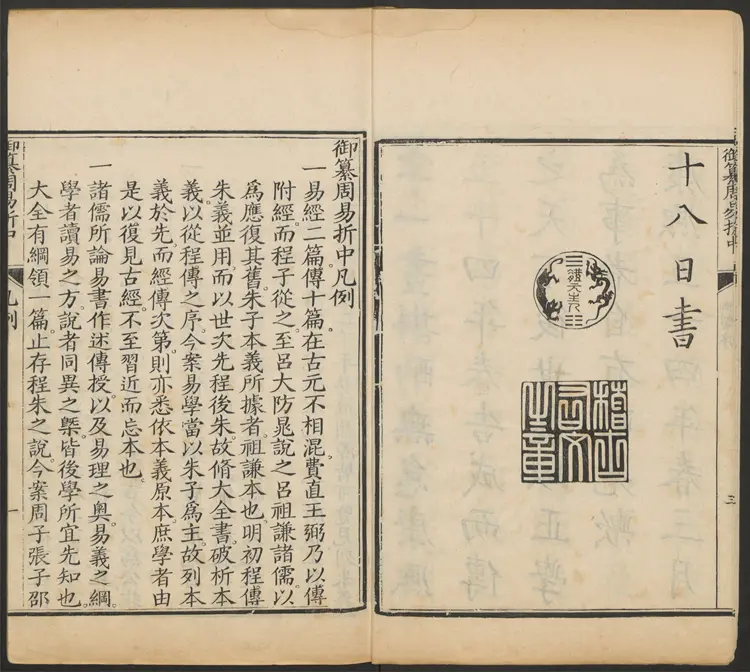 御纂周易折中
三
十八日書
體元主人
稽古右文之章
御纂周易折中凡例
一易經二篇。傳十篇。在古元不相混。費直王弼乃以傳
附經。而程子從之。至呂大防晁說之呂祖謙諸儒。以
爲應復其舊。朱子本義所據者。祖謙本也。明初程傳
朱義並用。而以世次先程後朱。故脩大全書。破析本
義。以從程傳之序。今案易學當以朱子爲主。故列本
義於先。而經傳次第。則亦悉依本義原本。庶學者由
是以復見古經。不至習近而忘本也。
一諸儒所論易書作述傳授。以及易理之奥。易義之綱。
學者讀易之方。說者同異之槩。皆後學所宜先知也。
大全有綱領一篇。止存程朱之說。今案周子張子邵
御纂周易折中
凡例
一